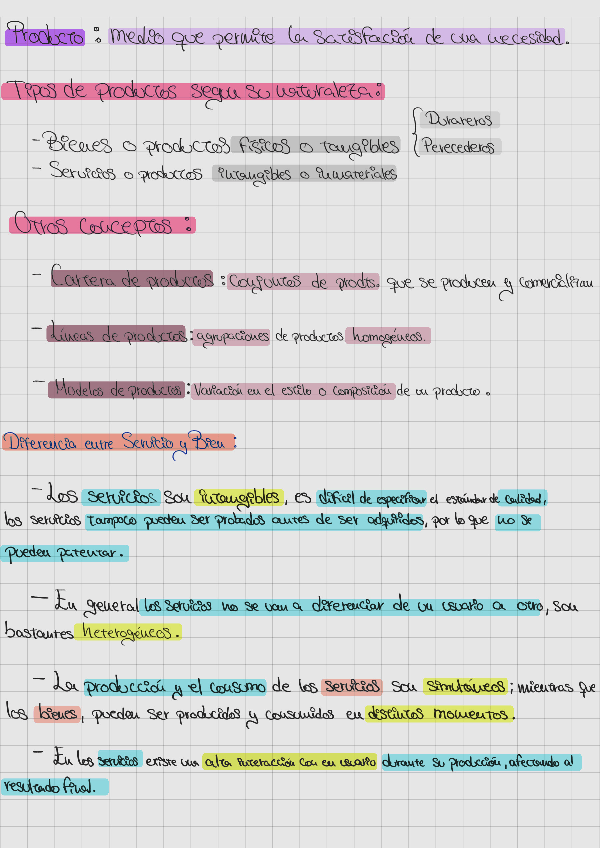 Producto : Medio que permite la satisfacción de una necesidad.
Tipos de productos segun su naturaleza:
- Bienes o productos físicos o tangibles { Duraderos
Perecederos
- Servicios o productos intangibles o inmateriales
Otros conceptos :
- Cartera de productos : Conjuntos de prodts. que se producen y comercializan
- Líneas de productos: agrupaciones de productos homogéneos.
- Modelos de productos: Variación en el estilo o composición de un producto.
Diferencia entre Servicio y Bien:
- Los servicios son intangibles, es difícil de especificar el estándar de calidad,
los servicios tampoco pueden ser probados antes de ser adquiridos, por lo que no se
pueden patentar.
- En general los servicios no se van a diferenciar de un usuario a otro, son
bastantes heterogéneos.
- La producción y el consumo de los servicios son simultáneos; mientras que
los bienes, pueden ser producidos y consumidos en distintos momentos.
- En los servicios existe una alta interacción con en usuario durante su producción, afectando al
resultado final.